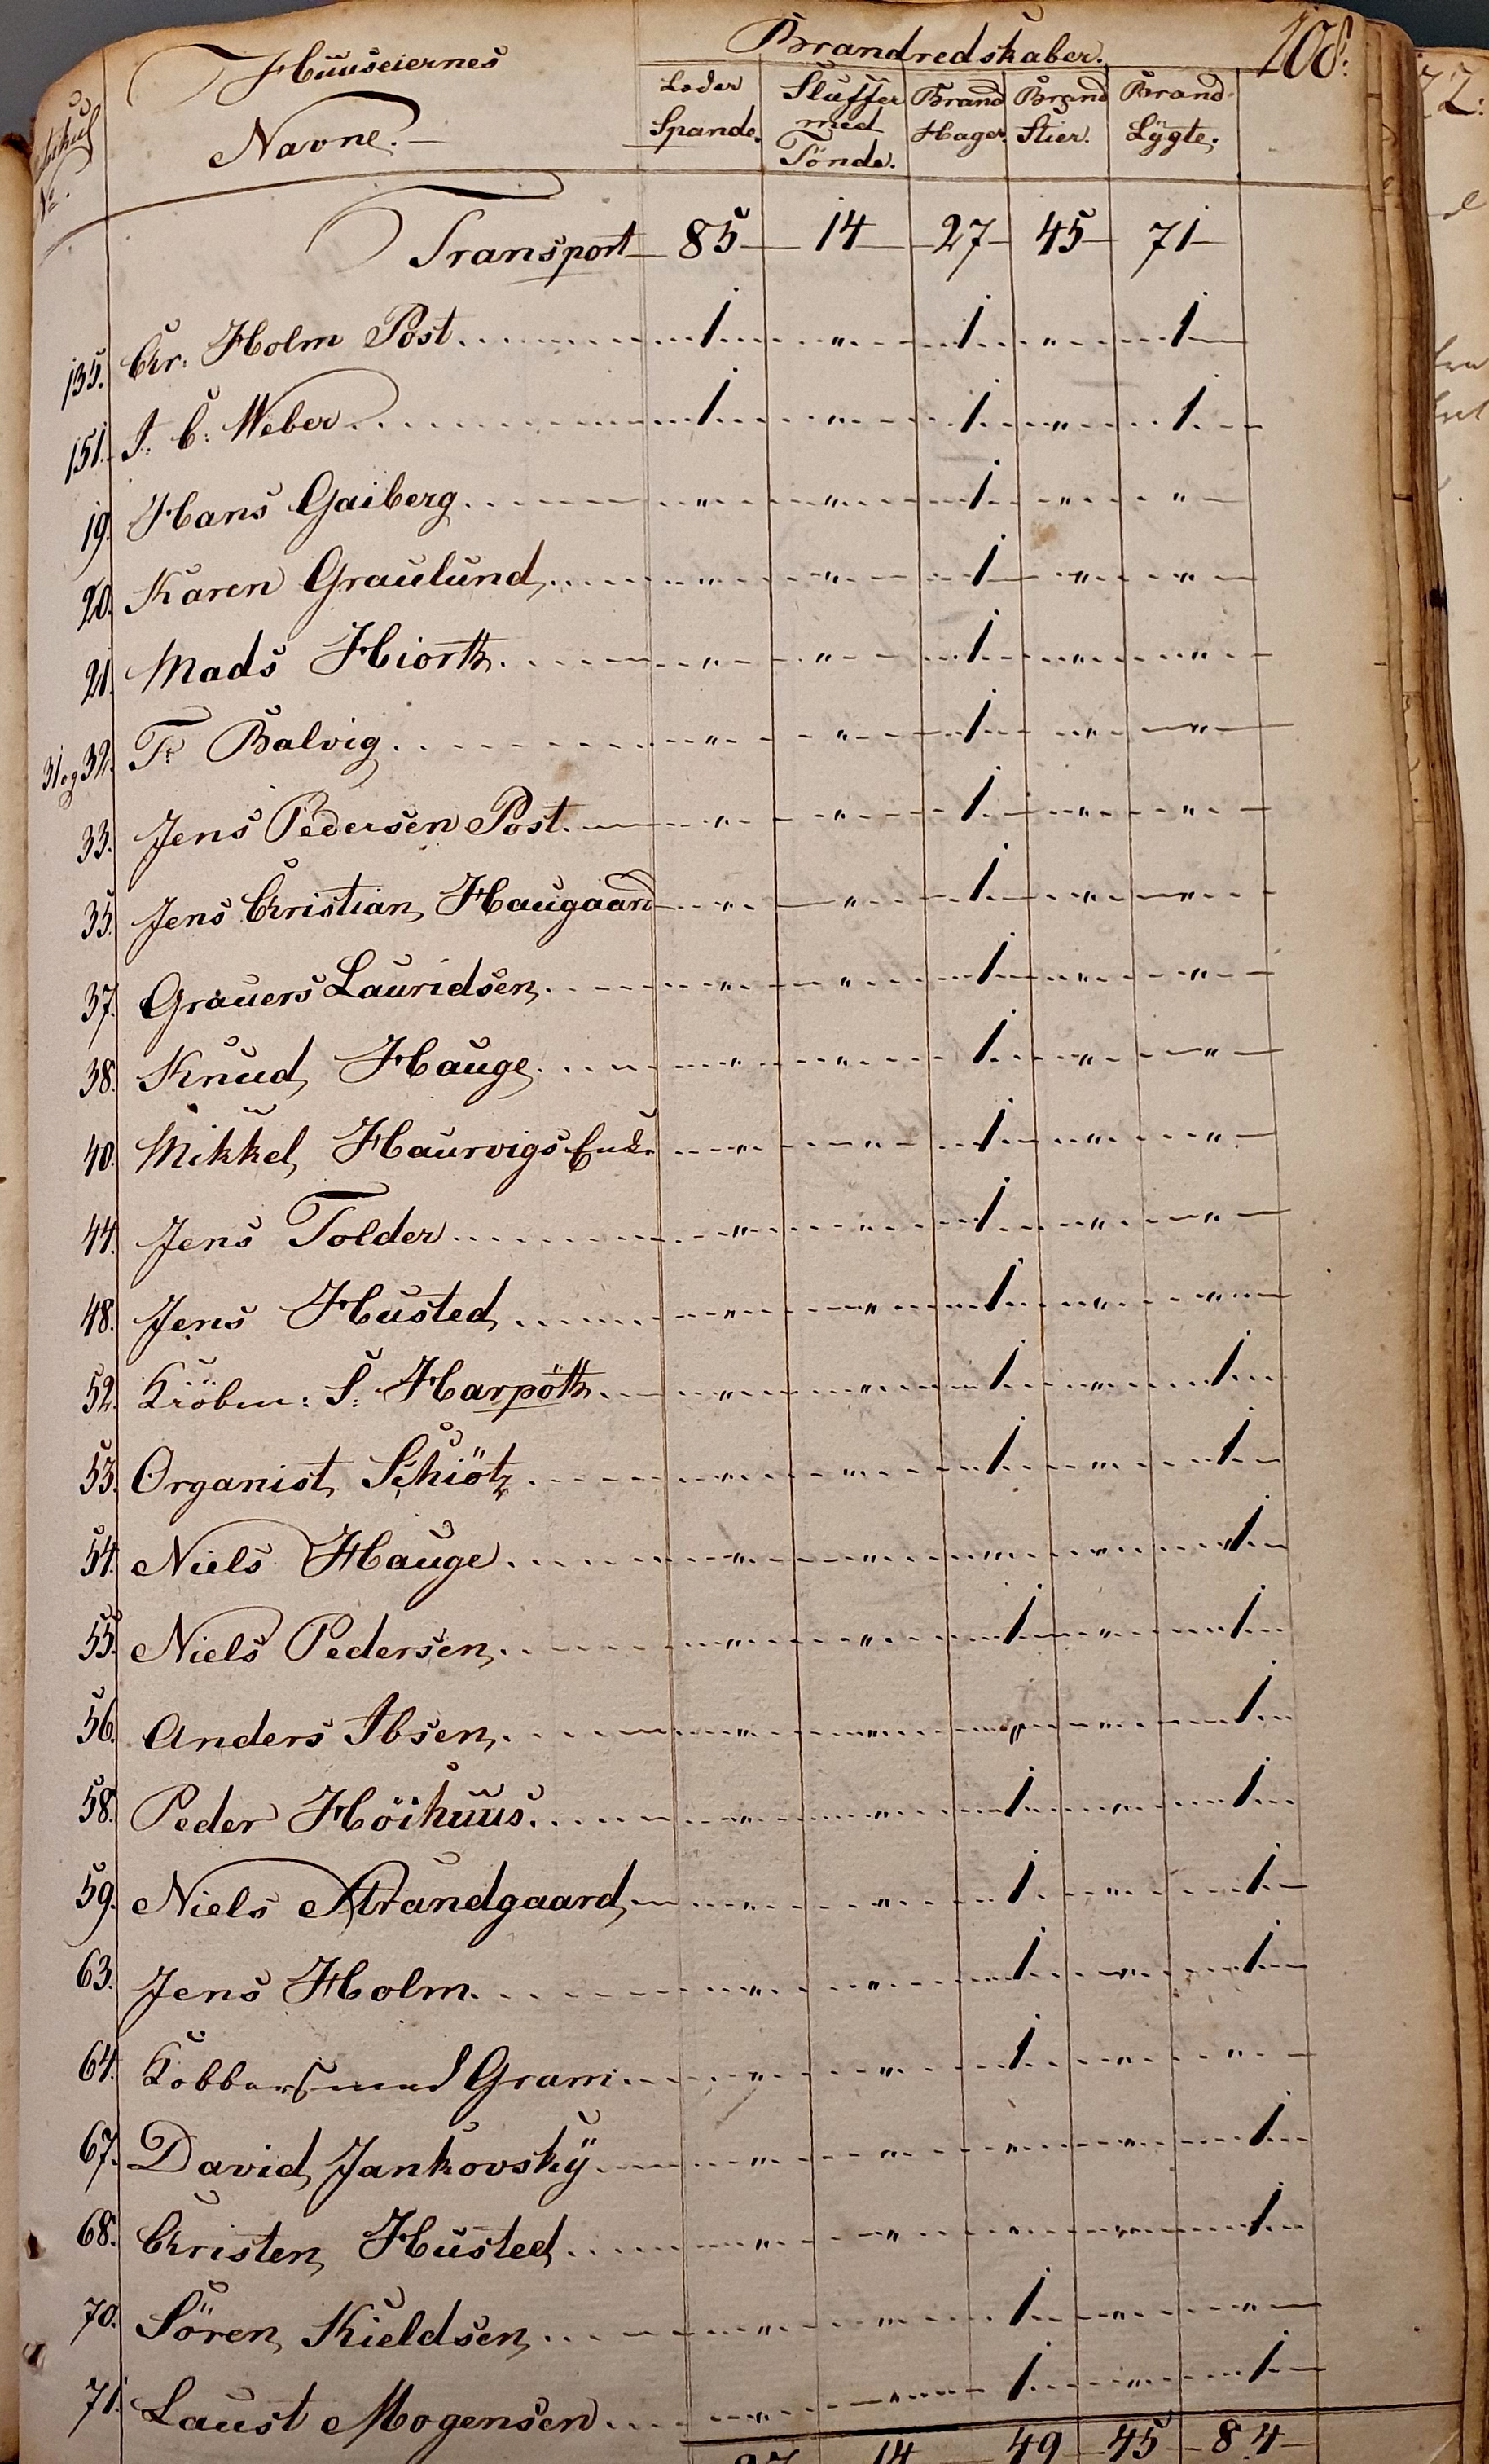 108.
Huuseiernes Navne.
Brandredskaber.
Matrikul No.
Læder Spande.
Sluffer med Tönde.
Brand Hager.
Brand Stier.
Brand Lÿgte.
Transport 85 14 27 45 71
135. Chr. Holm Post 1 " 1 " 1
151. I. C. Weber 1 " 1 " 1
19. Hans Gaiberg " " 1 " "
20. Karen Graulund " " 1 " "
21. Mads Hiorth " " 1 " "
31 og 32. Fr Balvig " " 1 " "
33. Jens Pedersen Post " " 1 " "
35. Jens Christian Haugaard " " 1 " "
37. Grauers Lauridsen " " 1 " "
38. Knud Hauge " " 1 " "
40. Mikkel Haurvigs Enke " " 1 " "
44. Jens Tolder " " 1 " "
48. Jens Husted " " 1 " "
52. Kiöbm: S. Harpöth " " 1 " 1
53. Organist Schiötz " " 1 " 1
54. Niels Hauge " " " " 1
55. Niels Pedersen " " 1 " 1
56. Anders Ibsen " " " " 1
58. Peder Höihuus " " 1 " 1
59. Niels Strandgaard " " 1 " 1
63. Jens Holm " " 1 " 1
64. Kobbersmed Gram " " 1 " "
67. David Jankovskÿ " " " " 1
68. Christen Husted " " " " 1
70. Sören Kieldsen " " 1 " "
71. Laust Mogensen " " 1 " 1
87 14 49 45 84